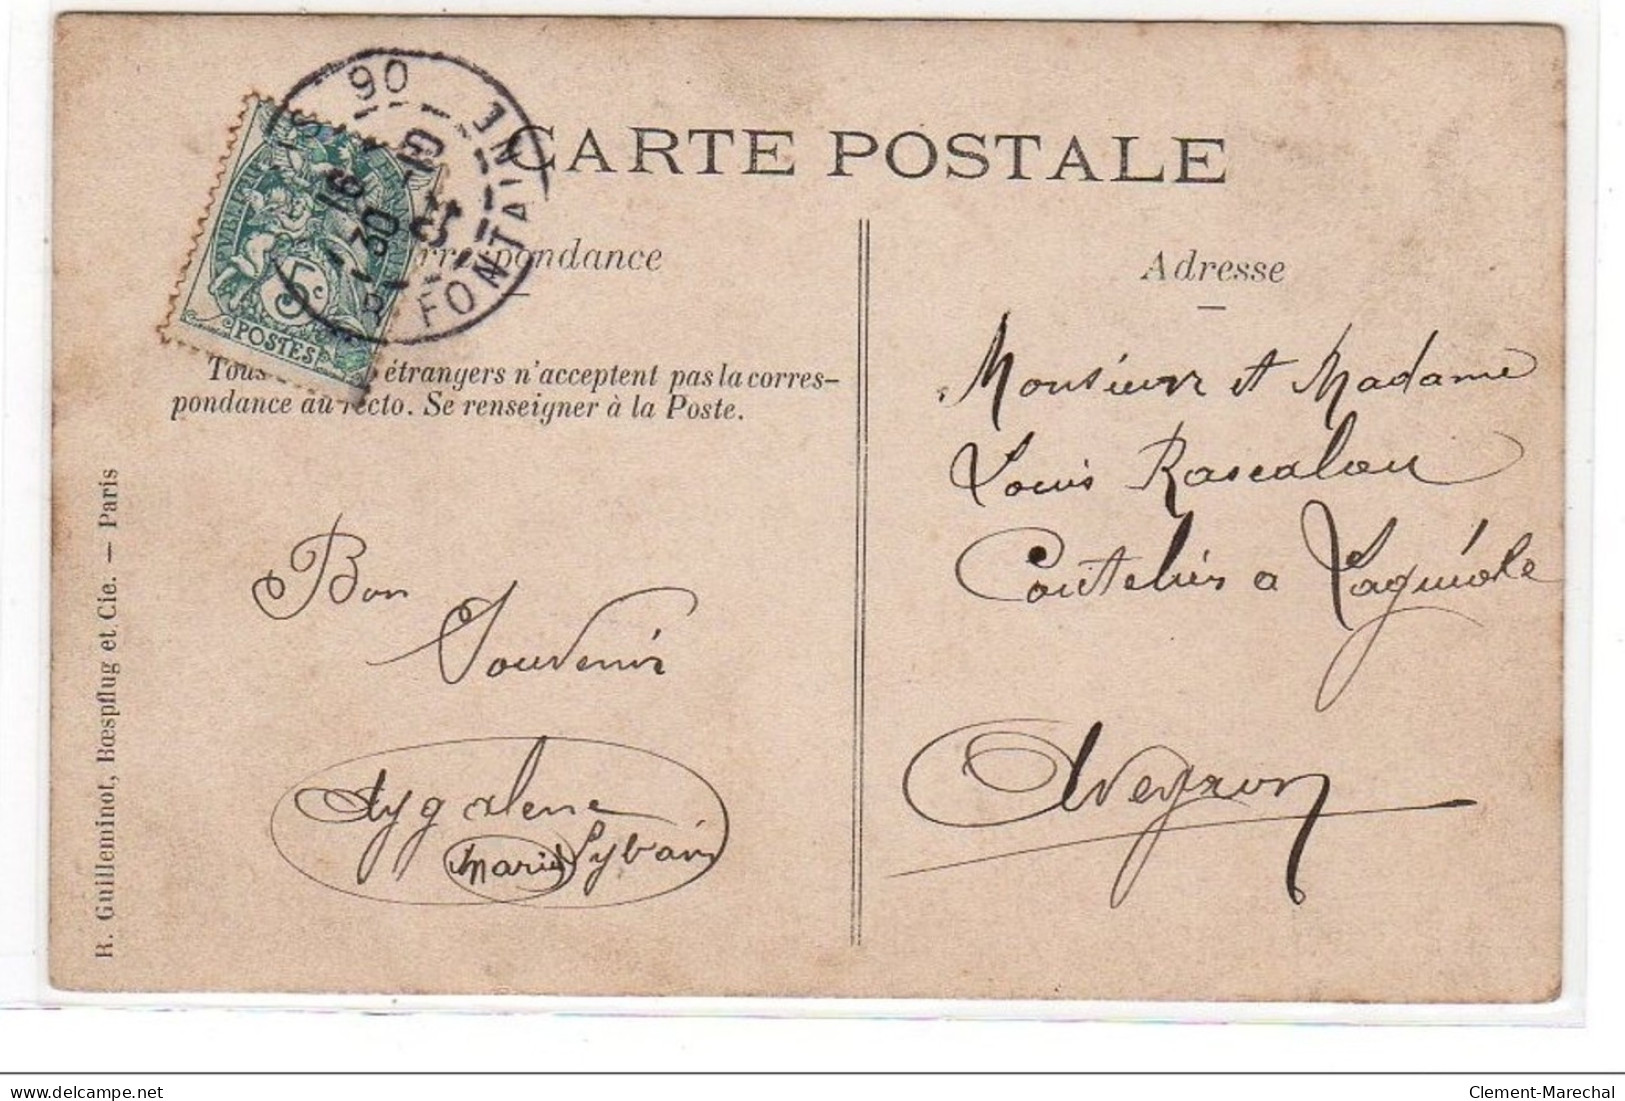 CARTE POSTALE
Correspondance
Adresse
Tous étrangers n'acceptent pas la corres-
pondance au recto. Se renseigner à la Poste.
R. Guilleminot, Bœspflug et Cie. — Paris
5c
POSTES
R. FONTAINE
16
30
-10
06
Monsieur et Madame
Louis Rascalou
Coutelier a Laguiole
Aveyron
Bon
Souvenir
Aygalene
Marie Sylvain
Clement-Marechal
www.delcampe.net